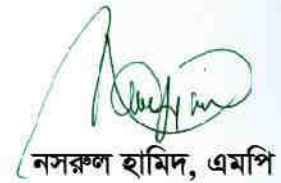 নসরুল হামিদ, এমপি